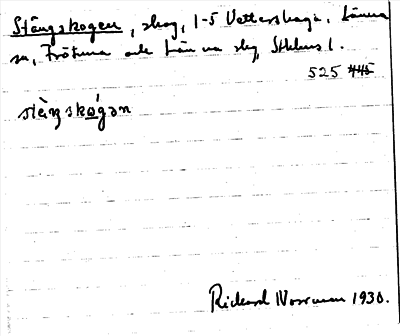 Stängskogen, skog, 1-5 Vettershaga, Länna
sn, Frötuna och Länna skg, Sthlms l.
525 445
stä̀ŋskó̱gən
Rickard Norrman 1930.